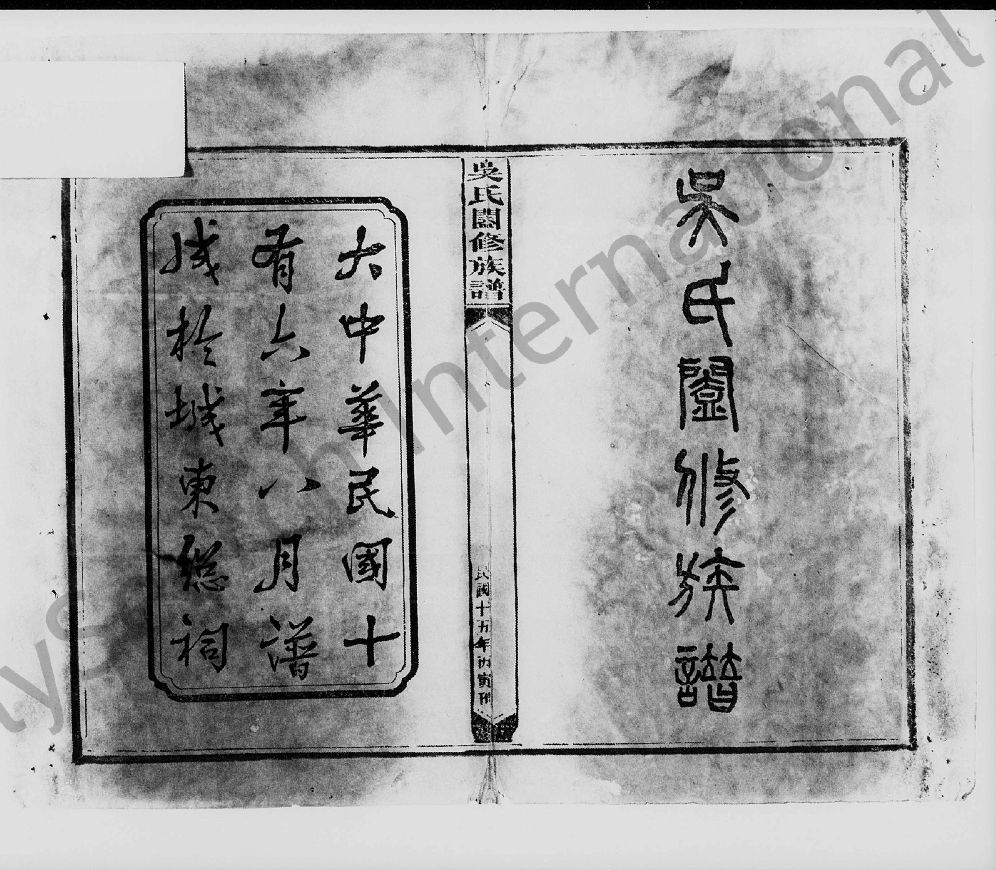 吳氏闔修族譜
吳氏闔修族譜
民國十五年丙寅刊
大中華民國十
有六年八月譜
成於城東總祠
International